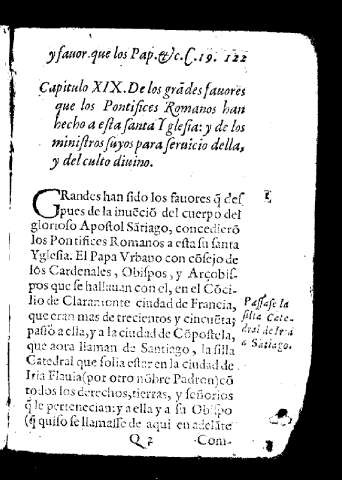 y fauor. que los Pap. &c. C. 19. 122
Capitulo XIX. De los grãdes fauores
que los Pontifices Romanos han
hecho a esta santa Yglesia: y de los
ministros suyos para seruicio della,
y del culto diuino.
GRandes han sido los fauores q̃ des
pues de la inuẽciõ del cuerpo del
glorioso Apostol Sãtiago, concedierõ
los Pontifices Romanos a esta su santa
Yglesia. El Papa Vrbano con cõsejo de
los Cardenales, Obispos, y Arçobis-
pos que se hallauan con el, en el Cõci-
lio de Claramonte ciudad de Francia,
que eran mas de trecientos y cincuẽta;
passò a ella, y a la ciudad de Cõpostela,
que aora llaman de Santiago, la silla
Catedral que solia estar en la ciudad de
Iria Flauia (por otro nõbre Padron) cõ
todos los derechos, tierras, y señorios
q̃ le pertenecian: y a ella y a su Obispo
(q̃ quiso se llamasse de aqui en adelãte
Q 2 Com-
1
Passase la
silla Cate-
dral de Iria
a Sãtiago.